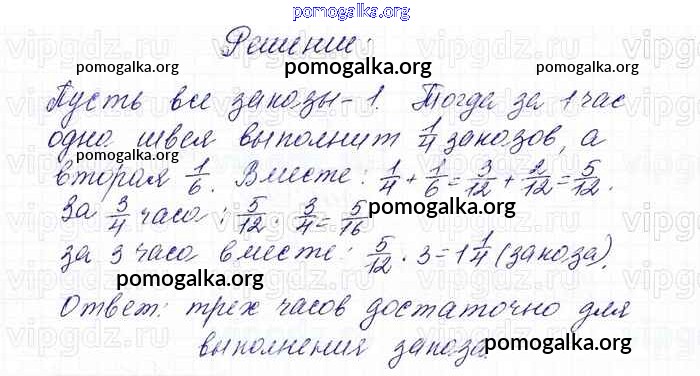 pomogalka.org
Решение:
pomogalka.org pomogalka.org pomogalka.org
Пусть все заказы - 1. Тогда за 1 час
одна швея выполнит 1/4 заказов, а
pomogalka.org pomogalka.org
вторая 1/6. Вместе: 1/4 + 1/6 = 3/12 + 2/12 = 5/12.
За 3/4 часа: 5/12 · 3/4 = 5/16
за 3 часа вместе: 5/12 · 3 = 1 1/4 (заказа).
pomogalka.org pomogalka.org
Ответ: трех часов достаточно для
выполнения заказа.
pomogalka.org pomogalka.org
vipgdz.ru vipgdz.ru vipgdz.ru vipgdz.ru